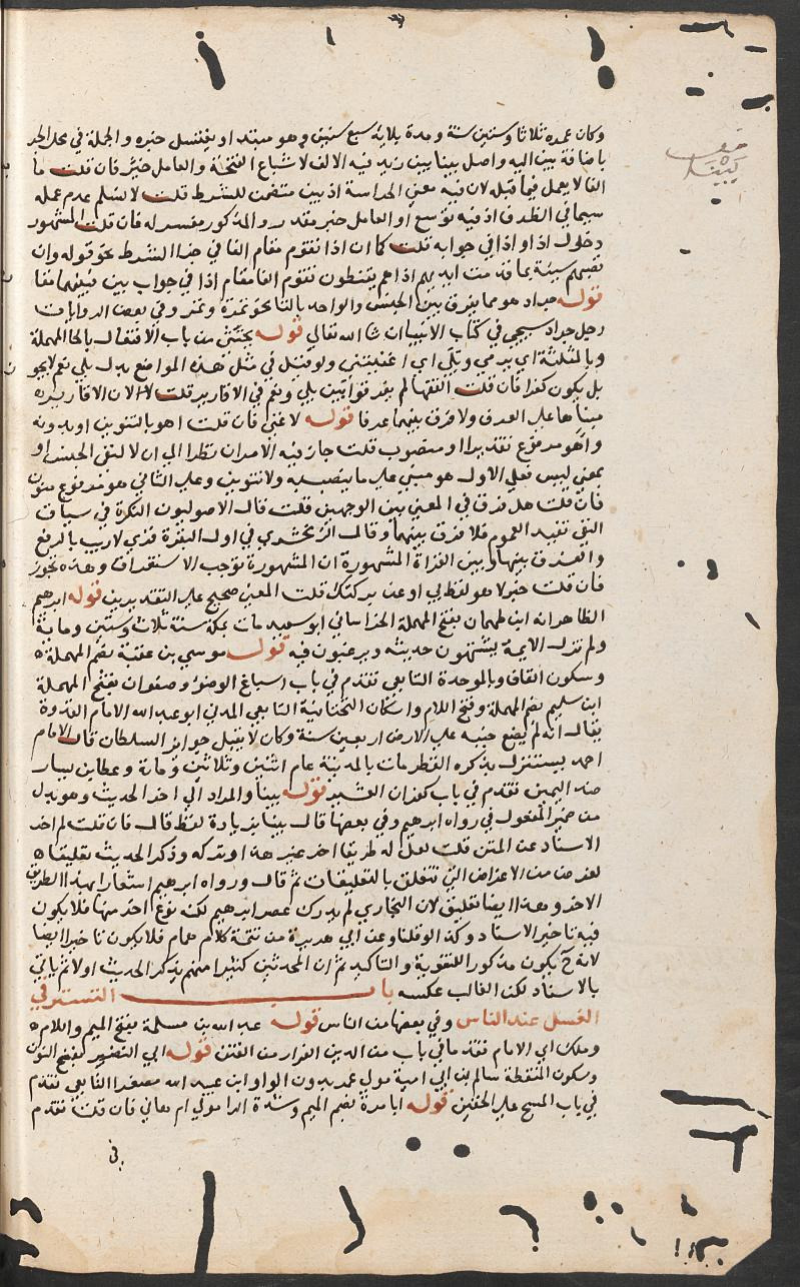 وكان عمره ثلاثا وستين سنة ومدة بلائه سبع سنين وهو مبتدا ويغتسل خبره والجملة في محل الجر
باضافة بين اليه واصل بينا بين زيد فيه الالف لاشباع الفتحة والعامل خر فان قلت ما
الفا لا يعمل فيما قبله لان فيه معني الجزائية اذ بين متضمن للشرط قلت لا نسلم عدم عمله
سيما في الظرف اذ فيه توسع او العامل خر مقدر والمذكور مفسر له فان قلت المشهور
دخول اذ او اذا في جوابه قلت كما ان اذا تقوم مقام الفا في جزا الشرط نحو قوله وان
تصبهم سيئة بما قدمت ايديهم اذا هم يقنطون تقوم الفا مقام اذا في جواب بين فبينهما مقا
قوله جراد هو مما يفرق بين الجنس والواحد بالتا نحو تمرة وتمر وفي بعض الروايات
رجل جراد سيجي في كتاب الانبيا ان شا الله تعالي قوله يحتثي من باب الافتعال بالحا المهملة
وبالمثلثة اي يرمي وبلي اي اغنيتني ولو قيل في مثل هذه المواضع بدل بلي نعم لا يجوز
بل يكون كفرا فان قلت الفقها لم يفرقوا بين بلي ونعم في الاقارير قلت لان الاقارير
مبناها علي العرف ولا فرق بينهما عرفا قوله لا غني فان قلت اهو بالتنوين او بدونه
واهو مرفوع تقديرا او منصوب قلت جاز فيه الامران نظرا الي ان لا لنفي الجنس او
بمعني ليس فعلي الاول هو مبني علي ما ينصب به ولا تنوين وعلي الثاني هو مرفوع منون
فان قلت هل فرق في المعني بين الوجهين قلت قال الاصوليون النكرة في سياق
النفي تفيد العموم فلا فرق بينهما وقال الزمخشري في اول البقرة قرئ لا ريب بالرفع
والفرق بينها وبين القراة المشهورة ان المشهورة توجب الاستغراق وهذه تجوزه
فان قلت خبر لا هو لفظ بي او عن بركتك قلت المعني صحيح علي التقديرين قوله ابرهيم
الظاهر انه ابن طهمان بفتح المهملة الخراساني ابو سعيد مات بمكة سنة ثلاث وستين وماية
ولم تزل الايمة يشتهون حديثه ويرغبون فيه قوله موسي بن عقبة بضم المهملة
وسكون القاف وبالموحدة التابعي تقدم في باب اسباغ الوضو وصفوان بفتح المهملة
ابن سليم بضم المهملة وفتح اللام واسكان التحتانية التابعي المدني ابو عبد الله الامام القدوة
يقال انه لم يضع جنبه علي الارض اربعين سنة وكان لا يقبل جوايز السلطان قال الامام
احمد يستنزل بذكره القطر مات بالمدينة عام اثنين وثلاثين وماية وعطا بن يسار
ضد اليمين تقدم في باب كفران العشير قوله بينا والمراد الي اخر الحديث وهو بدل
من ضمير المفعول في رواه ابرهيم وفي بعضها قال بينا بزيادة لفظ قال فان قلت لم اخر
الاسناد عن المتن قلت لعل له طريقا اخر غير هذا وتركه وذكر الحديث تعليقا
لغرض من الاغراض التي تتعلق بالتعليقات ثم قال ورواه ابرهيم اشعارا بهذا الطريق
الاخر ومع هذا ايضا تعليق لان البخاري لم يدرك عصر ابرهيم لكنه نوع اخر منها فلا يكون
فيه تاخير الاسناد وكذا لو قلنا وعن ابي هريرة من تتمة كلام همام فلا يكون تاخيرا ايضا
لانه ح يكون مذكورا للتقوية والتاكيد ثم ان المحدثين كثيرا منهم يذكر الحديث اولا ثم ياتي
بالاسناد لكن الغالب عكسه باب التستر في
الغسل عند الناس وفي بعضها من الناس قوله عبد الله بن مسلمة بفتح الميم واللام
وملك اي الامام تقدما في باب من الدين الفرار من الفتن قوله ابي النضر بفتح النون
وسكون المنقطة سالم بن ابي امية مولي عمر بدون الواو ابن عبيد الله مصغرا التابعي تقدم
في باب المسح علي الخفين قوله ابا مرة بضم الميم وشدة الرا مولي ام هاني فان قلت تقدم
في